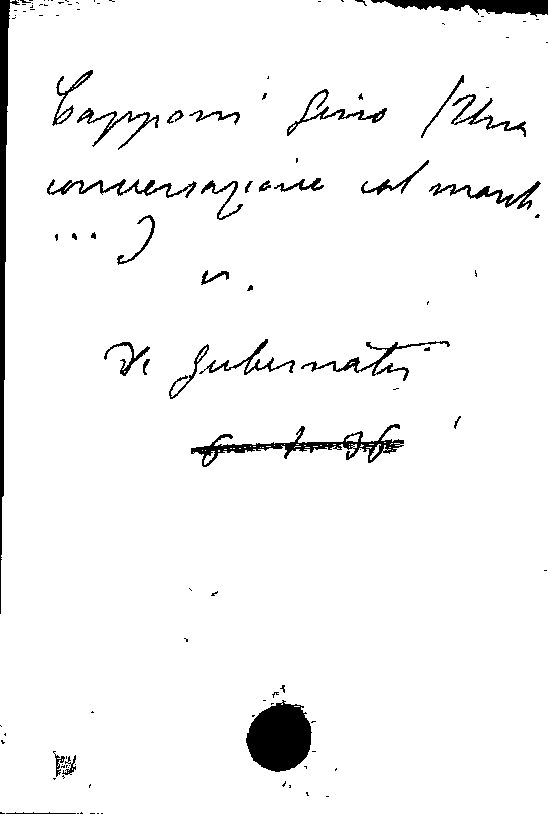 Capponi Gino (Una
conversazione col march.
... )
v.
De Gubernatis